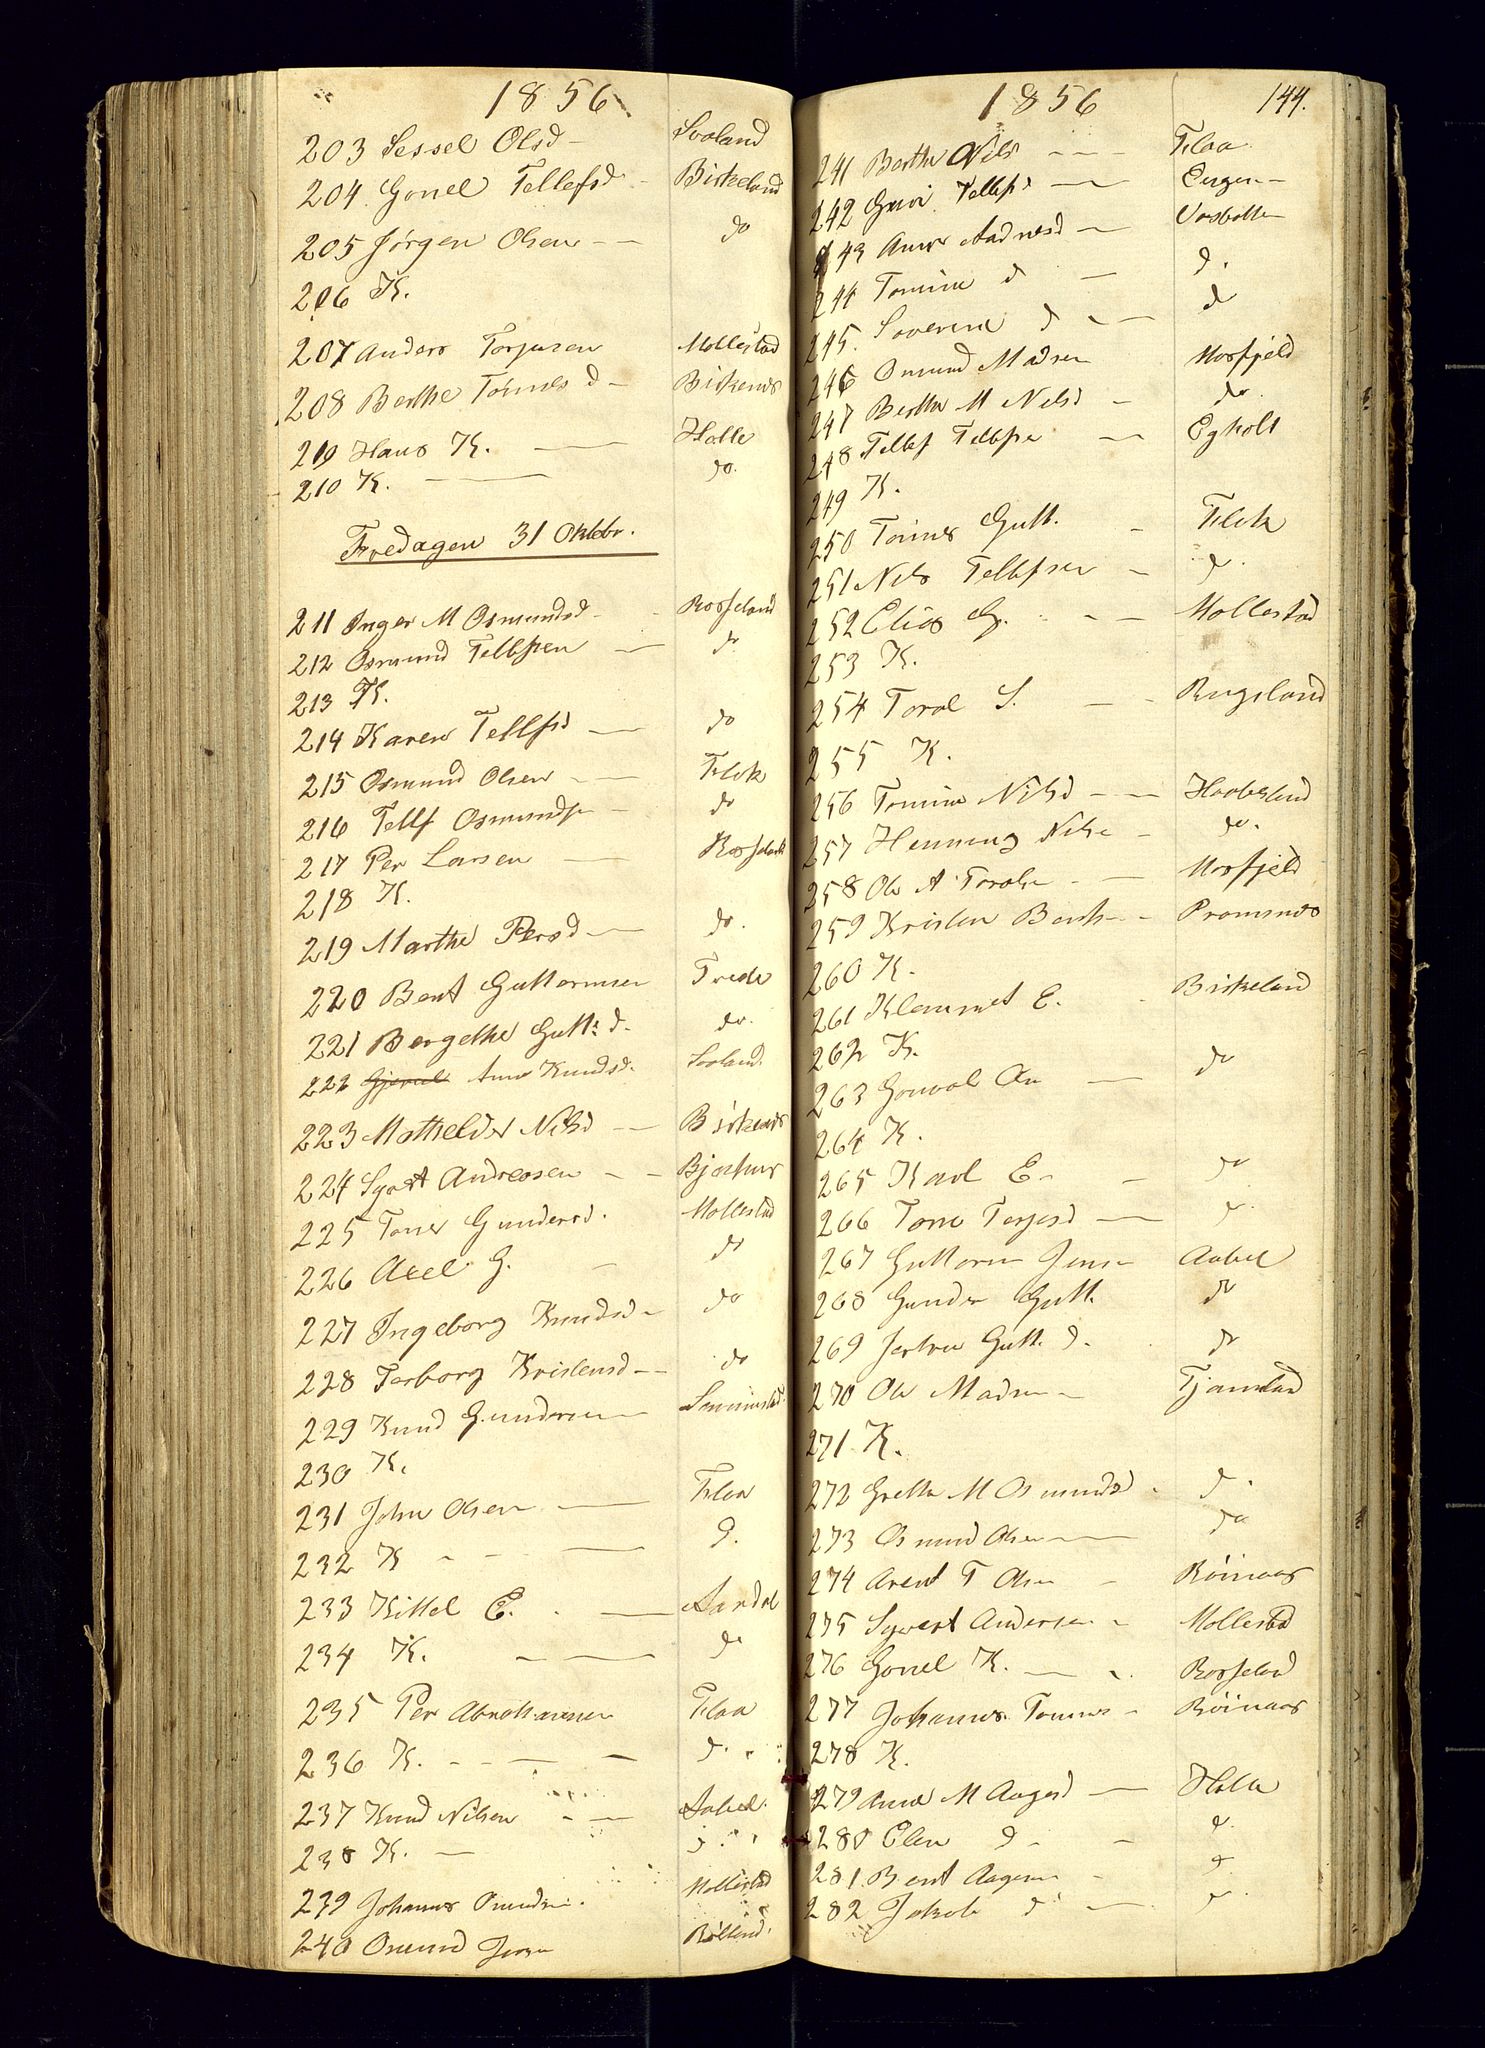 1856
203 Sessel Olsd - Svaland
204 Gonel Tellefsd - Birkeland
205 Jørgen Olsen - - do
206 K.
207 Anders Torjusen Mollestad
208 Berthe Tømesd - Birkenes
209 Hans K. - Holle
210 K. - do.
Fredagen 31 Oktbr.
211 Inger M Osmundsd - Rosseland
212 Osmund Tellefsen - do
213 K.
214 Karen Tellfsd - do
215 Osmund Olsen - - Flok
216 Tellf Osmunds - do
217 Per Larsen - Rosseland
218 K.
219 Marthe Persd - do.
220 Bent Guttormsen Trede
221 Bergethe Gutt. d. do.
222 Ane Knudsd. Svaland.
223 Mathelde Nilsd - Birkenes
224 Sywert Andreasen - -
225 Tone Gundersd. Mollestad
226 Axel G. - do
227 Ingeborg Knudsd - do
228 Torborg Kristensd - - do
229 Knud Gundersen
230 K.
231 John Olsen - Flaa
232 K - - - d.
233 Kittel E. - Aardal
234 K. - - do
235 Per Abrahamsen Flaa
236 K. - - - - d.
237 Knud Nilsen - - Aabel.
238 K. - d
239 Johannes Omunds. Mollestad
240 Omund
1856 144.
241 Berthe Nils - - - Flaa
242 Guri Tellfsd -
243 Ane Aadnesd - Vasbotten
244 Tomine d - d.
245. Severine d - - d
246 Omund Madsen Mosfjeld
247 Berthe M Nilsd - do.
248 Tellef Tellefse - Egholt
249 K.
250 Tønnes Gutt. - Flok
251 Nils Tellefsen - d.
252 Elias G. - - Mollestad
253 K.
254 Torol S. - - Rugsland
255 K.
256 Tomine Nilsd - - Haabesland
257 Henning Nilse - do.
258 Ole A Torolse - - Mosfjeld
259 Kristen Bents - -
260 K.
261 Klemmet E. Birkeland
262 K.
263 Gonval An - do
264 K.
265 Karl E - - do
266 Tone Terjesd - d.
267 Guttorm Jens - Aabel
268 Gunder Gutt. do
269 Gutt. d. do
270 Ole Madsen - Tjomstad
271 K.
272 Grethe M Osmundsd. d.
273 Osmund Olsen - do
274 Arent T Olsen - Røinaas
275 Sywert Andersen - Mollestad
276 Gonel K. - - Rosseland
277 Johannes Tønnes - Røinaas
278 K.
279 Anne M Aagesd - Holle
280 Elen d - - d.
281 Bent Aagesen - d
282 Jakob d - - d